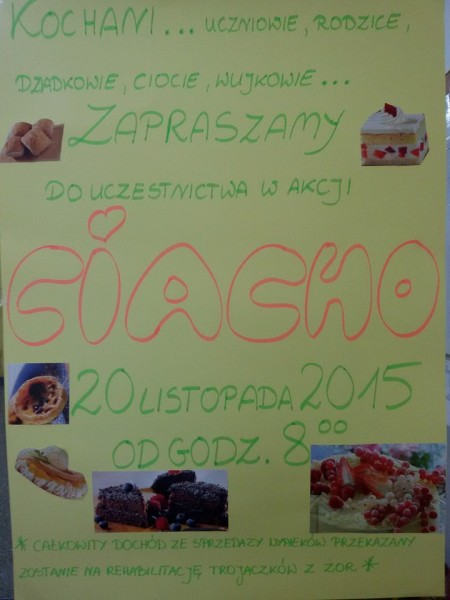 KOCHANI... UCZNIOWIE, RODZICE,
DZIADKOWIE, CIOCIE, WUJKOWIE...
ZAPRASZAMY
DO UCZESTNICTWA W AKCJI
CIACHO
20 LISTOPADA 2015
OD GODZ. 8 00
* CAŁKOWITY DOCHÓD ZE SPRZEDAŻY WYPIEKÓW PRZEKAZANY
ZOSTANIE NA REHABILITACJĘ TROJACZKÓW Z ŻOR *